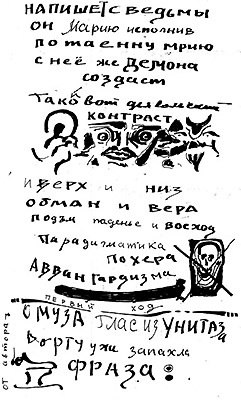 НАПИШЕТ С ВЕДЬМЫ
ОН МАРИЮ ИСПОЛНИВ
ПОТАЕННУ МРИЮ
С НЕЁ ЖЕ ДЕМОНА
СОЗДАСТ
ТАКОЙ ВОТ
КОНТРАСТ
И ВЕРХ И НИЗ
ОБМАН И ВЕРА
ПОДЪМ ПАДЕНЬЕ И ВОСХОД
ПАРАДИГМАТИКА
ПОХЕРА
АВВАНГАРДИЗМА
ПЕРВЫЙ ХОД
О МУЗА ГЛАС ИЗ УНИТАЗА
ВО РТУ УЖ ЗАПАХЛА
ФРАЗА!
ОТ АВТОРА